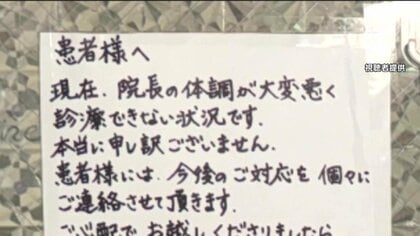 患者様へ
視聴者提供
現在、院長の体調が大変悪く
診療できない状況です。
本当に申し訳ございません。
患者様には、今後のご対応を個々に
ご連絡させて頂きます。
ご心配でお越しくださりましたら